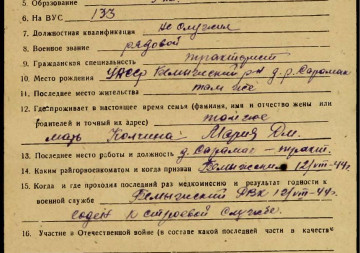 5. Образование
6. На ВУС 133
7. Должностная квалификация не служил
8. Военное звание рядовой
9. Гражданская специальность тракторист
10. Место рождения УАССР Вемышский р-н д.
11. Последнее место жительства там же
12. Где проживает в настоящее время семья (фамилия, имя и отчество жены или
родителей и точный их адрес) там же
мать Мария Дм.
13. Последнее место работы и должность д. – тракт.
14. Каким райгорвоенкоматом и когда призван 12/VIII-44г.
15. Когда и где проходил последний раз медкомиссию и результат годности к
военной службе РВК 12/VIII-44г.
годен к строевой службе.
16. Участие в Отечественной войне (в составе какой последней части в качестве